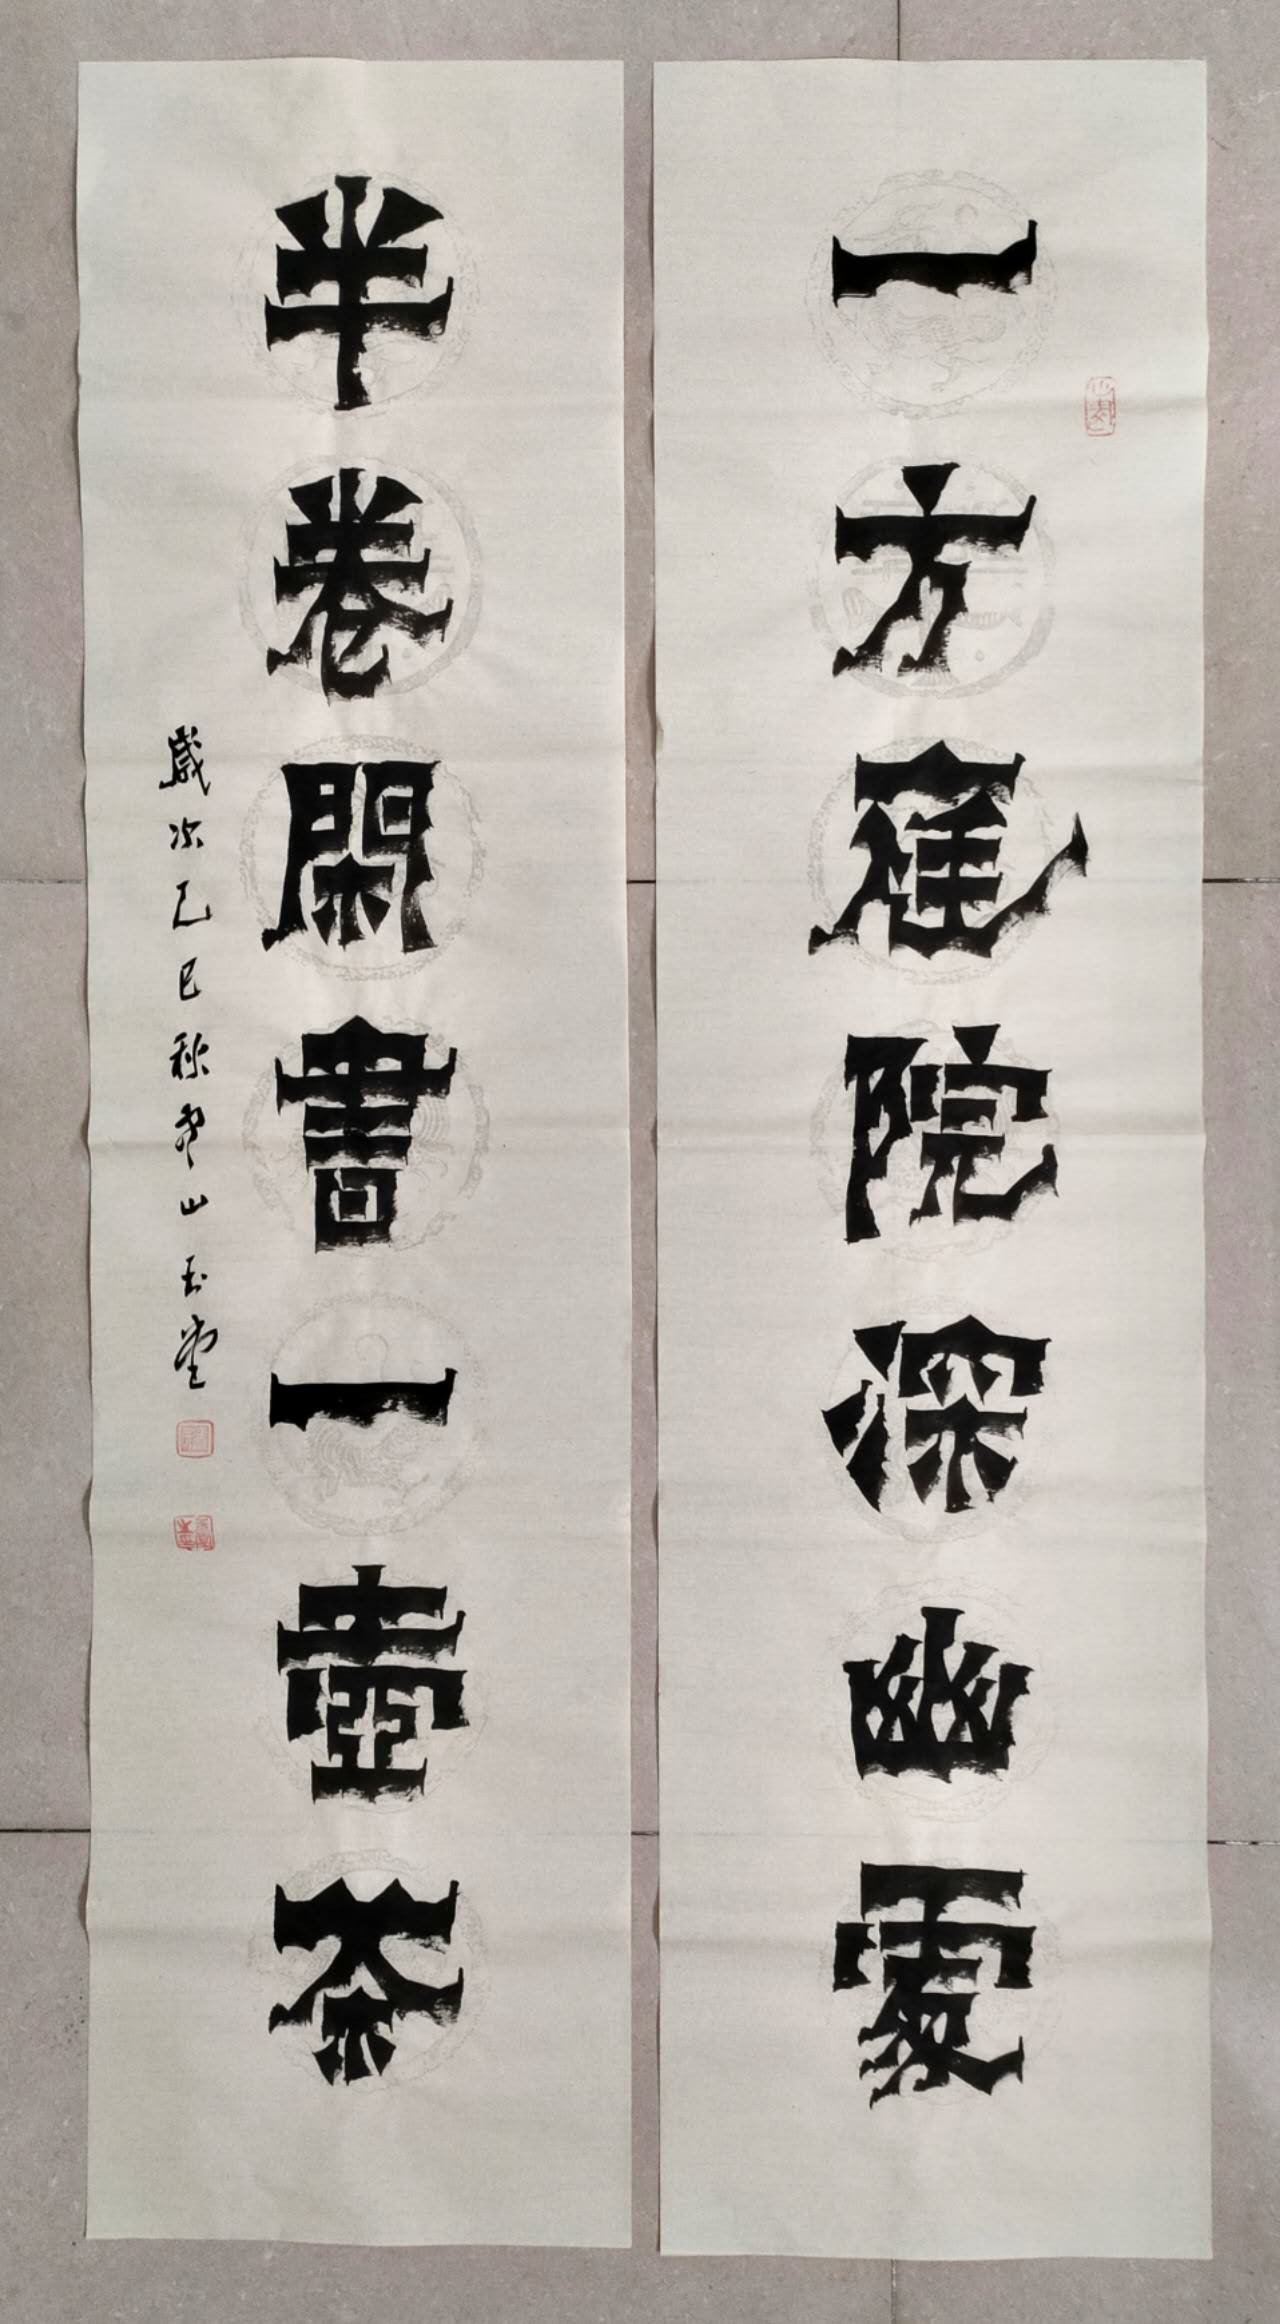 一方庭院深幽處
半卷閑書一壺茶
歲次乙巳秋山玉堂